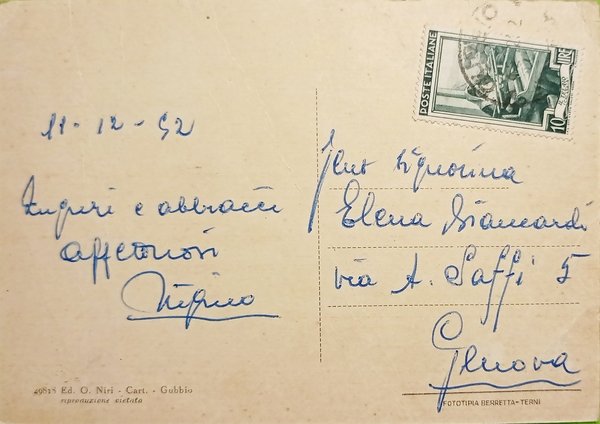 11-12-52
Auguri e abbracci
affettuosi
49818 Ed. G. Niri - Cart. - Gubbio
riproduzione vietata
POSTE ITALIANE
10 LIRE
signorina
Elena Biancardi
via A. Saffi 5
Genova
FOTOTIPIA BERRETTA-TERNI